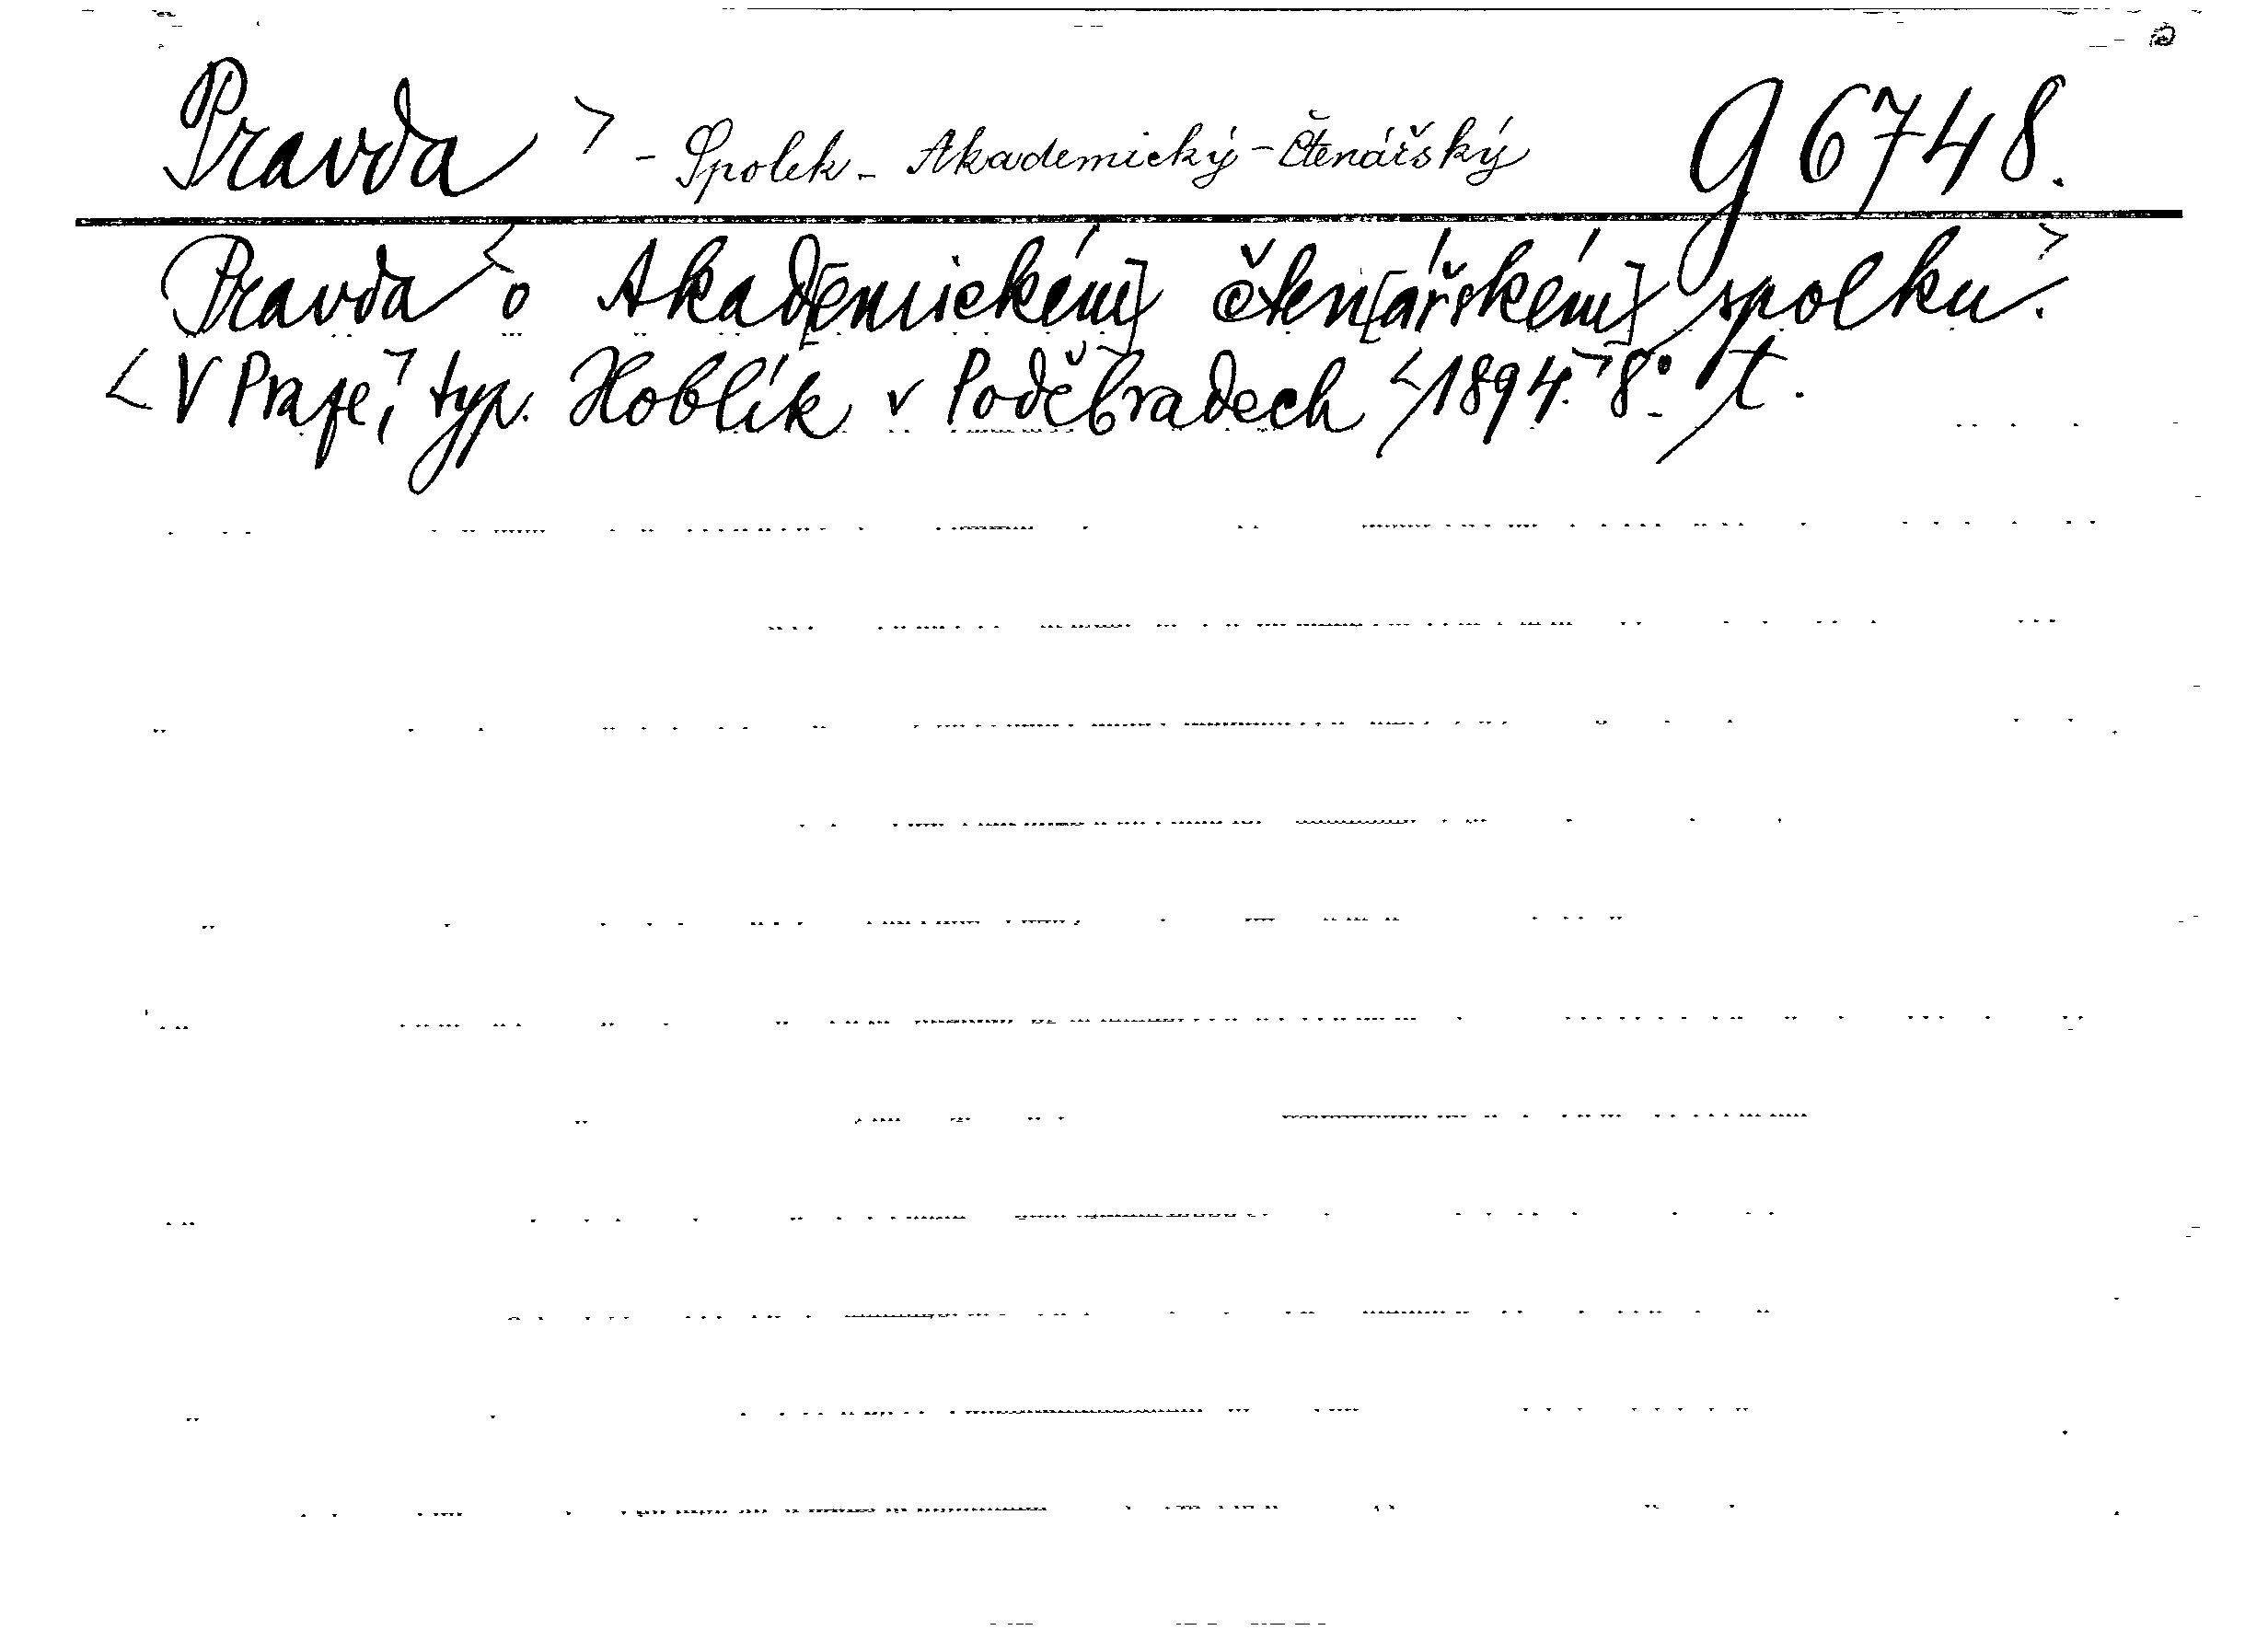 Pravda > - Spolek - Akademický - Čtenářský g 6748.
Pravda < o Akad[emickém] čten[ářském] spolku. >
< V Praze, > typ. Hoblík v Poděbradech < 1894. > 8º. t.